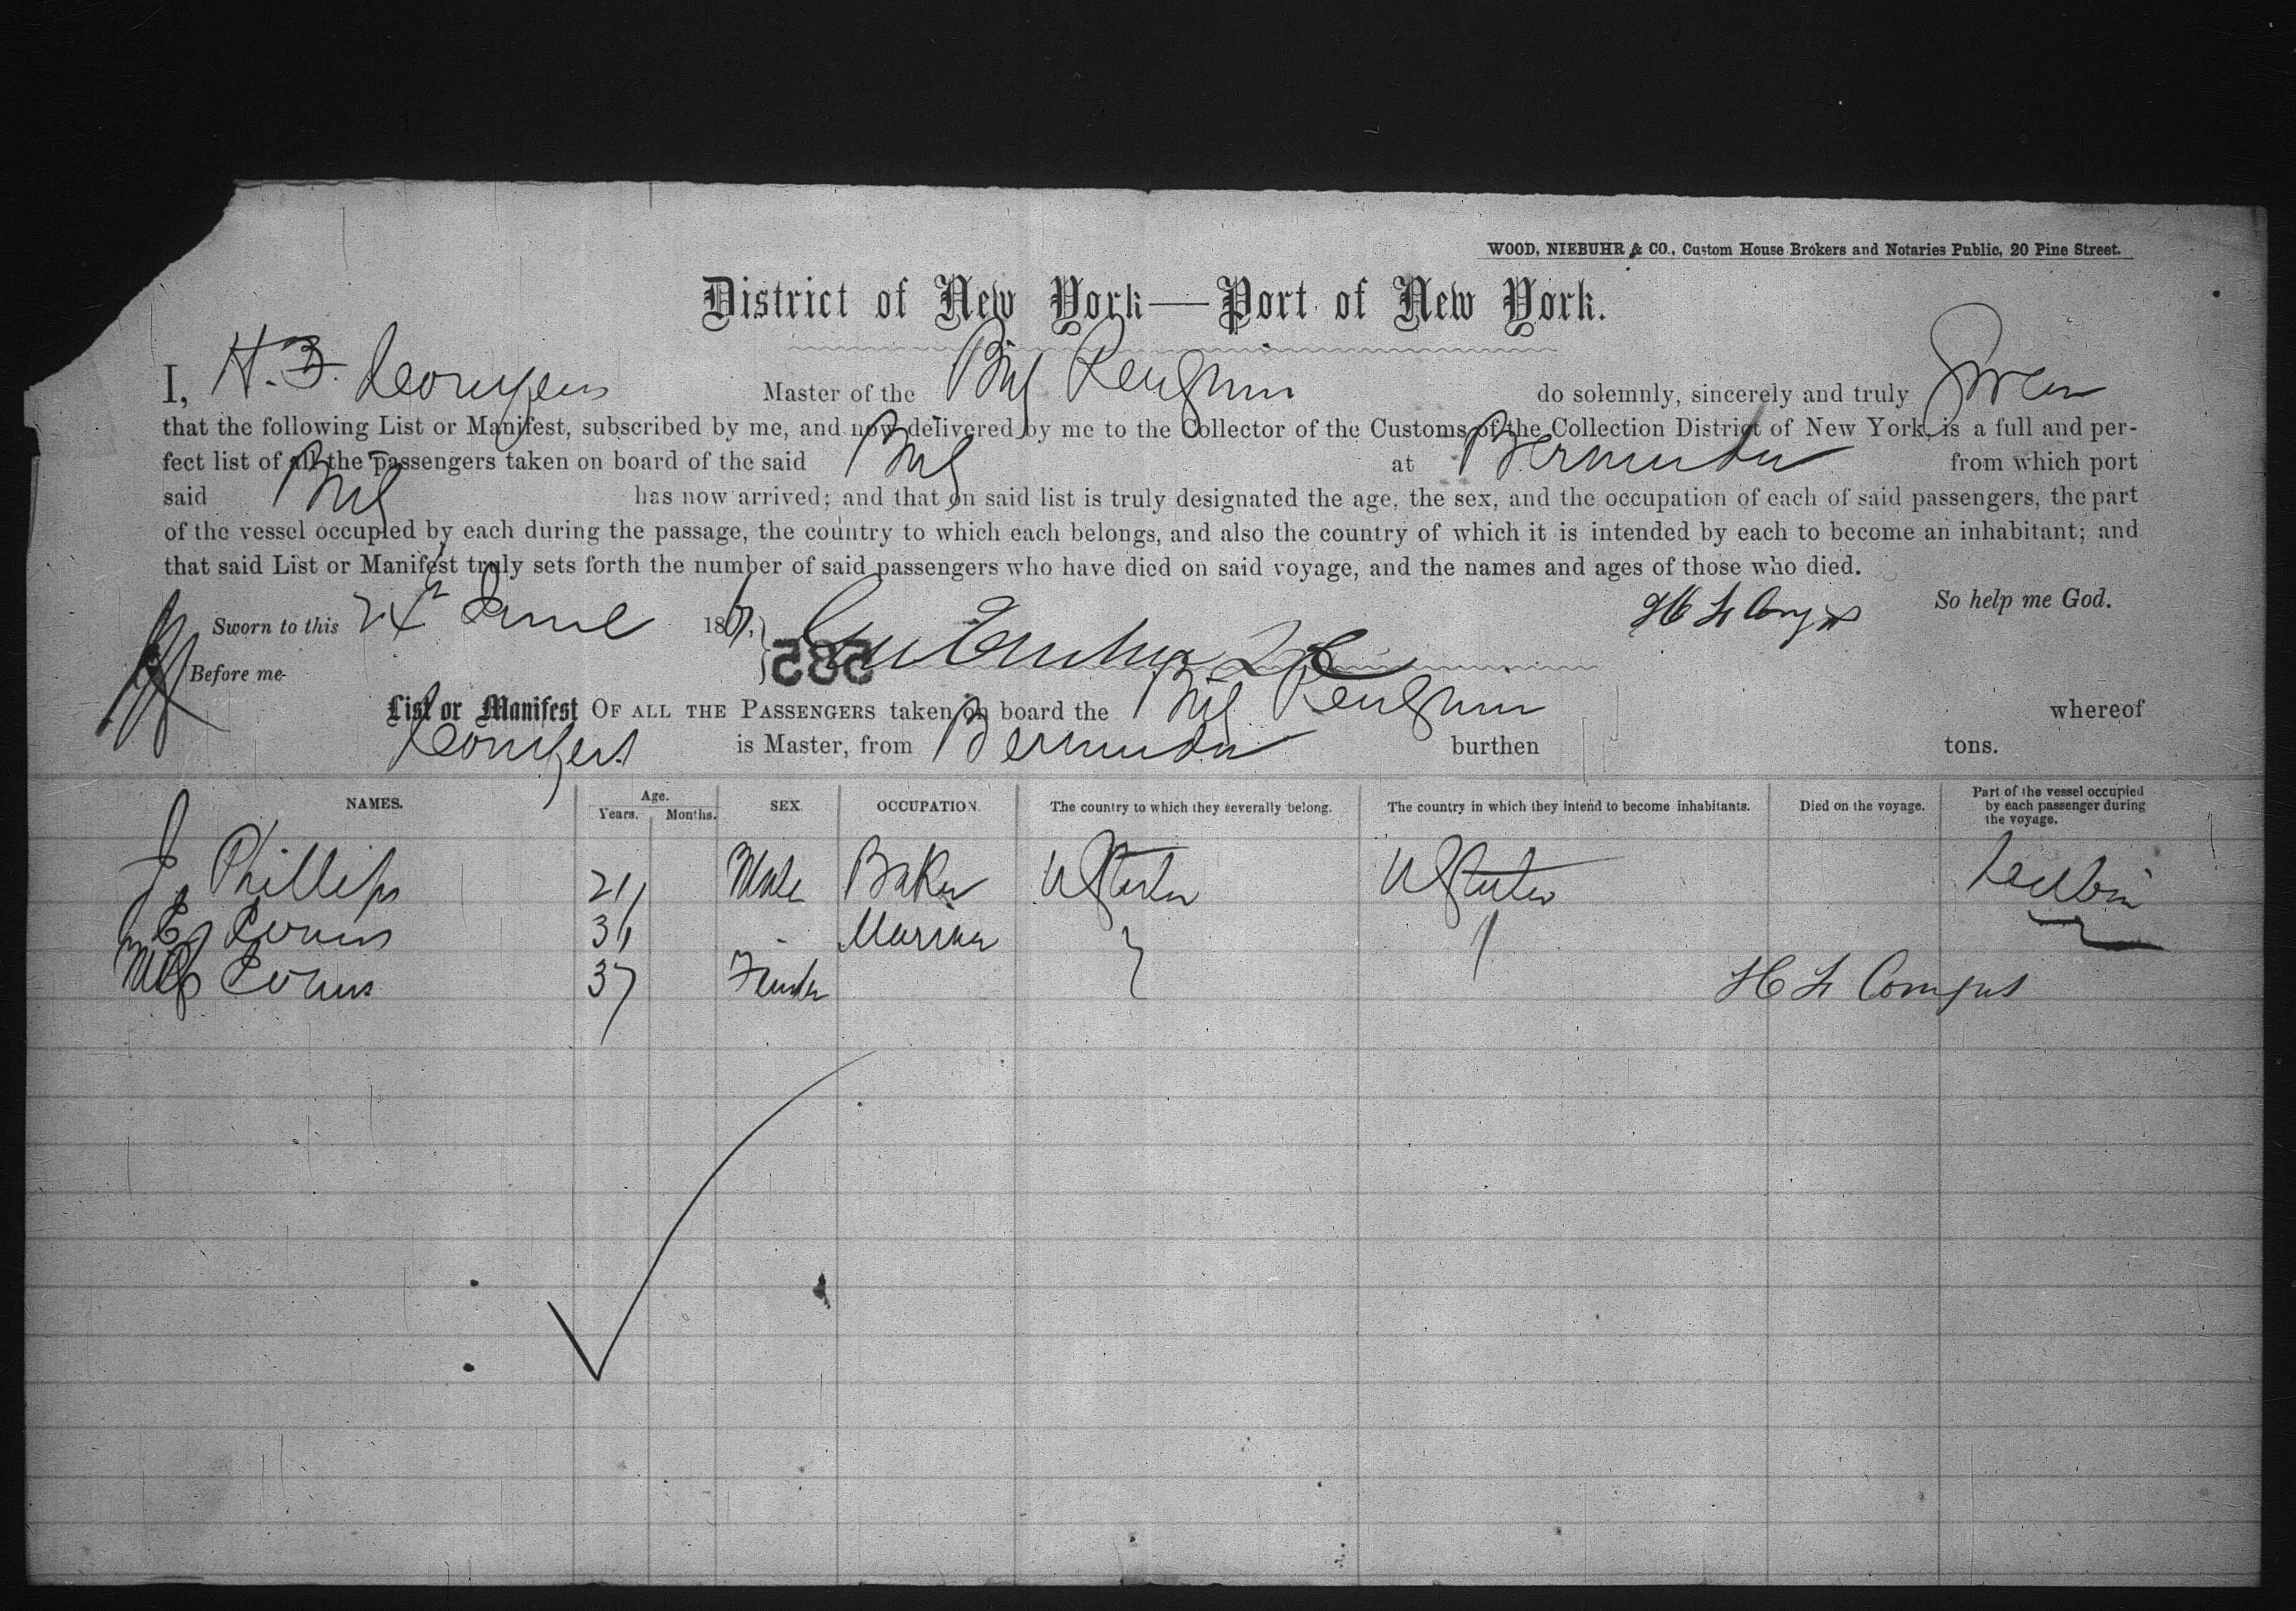 WOOD, NIEBUHR & CO., Custom House Brokers and Notaries Public, 20 Pine Street.
District of New York—Port of New York.
I, H. Master of the Brig Penguin do solemnly, sincerely and truly Swear
that the following List or Manifest, subscribed by me, and now delivered by me to the Collector of the Customs of the Collection District of New York, is a full and per-
fect list of all the passengers taken on board of the said Brig at Bermuda from which port
said Brig has now arrived; and that on said list is truly designated the age, the sex, and the occupation of each of said passengers, the part
of the vessel occupied by each during the passage, the country to which each belongs, and also the country of which it is intended by each to become an inhabitant; and
that said List or Manifest truly sets forth the number of said passengers who have died on said voyage, and the names and ages of those who died.
So help me God.
Sworn to this 24th June 186
Before me
585
List or Manifest OF ALL THE PASSENGERS taken on board the Brig Penguin whereof
is Master, from Bermuda burthen tons.
NAMES. Age. Years. Months. SEX. OCCUPATION. The country to which they severally belong. The country in which they intend to become inhabitants. Died on the voyage. Part of the vessel occupied by each passenger during the voyage.
J Phillips 21 Male Baker U States U States Cabin
E Evans 31 Mariner
Evans 37 Female